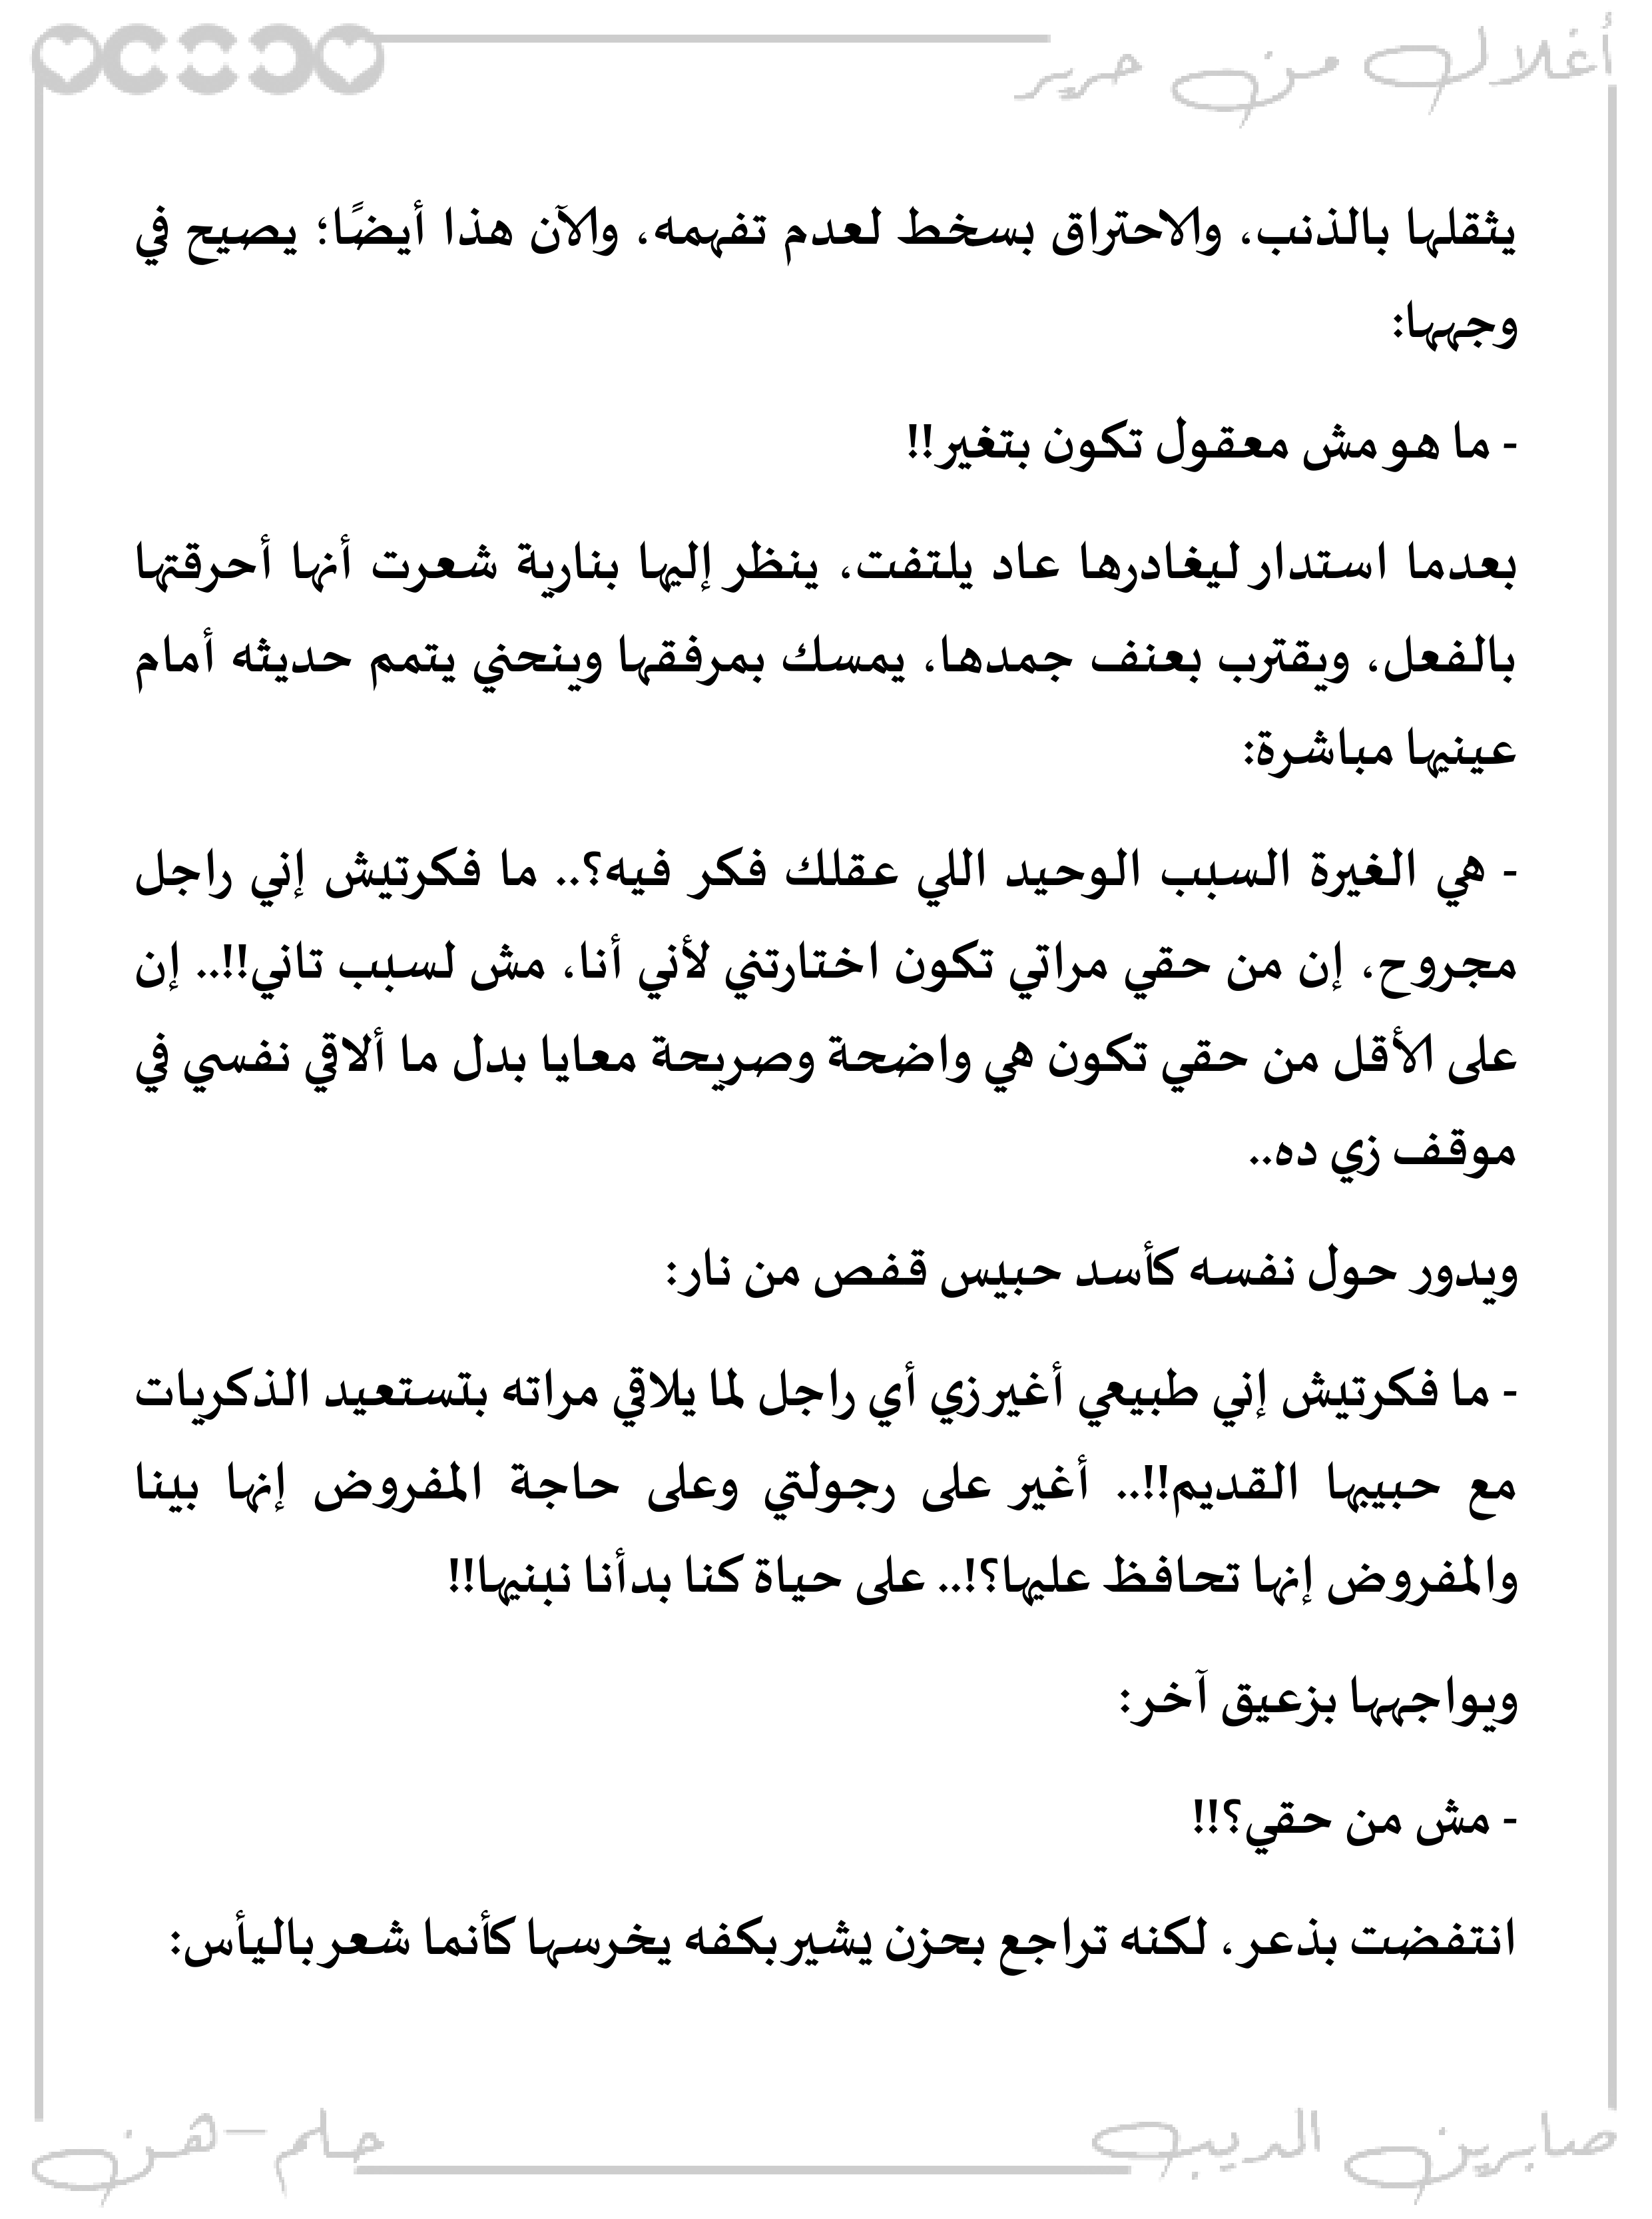 أغلال من حرير
يثقلها بالذنب، والاحتراق بسخط لعدم تفهمه، والآن هذا أيضًا؛ يصيح في
وجهها:
- ما هو مش معقول تكون بتغير!!
بعدما استدار ليغادرها عاد يلتفت، ينظر إليها بنارية شعرت أنها أحرقتها
بالفعل، ويقترب بعنف جمدها، يمسك بمرفقها وينحني يتمم حديثه أمام
عينيها مباشرة:
- هي الغيرة السبب الوحيد اللي عقلك فكر فيه؟.. ما فكرتيش إني راجل
مجروح، إن من حقي مراتي تكون اختارتني لأني أنا، مش لسبب تاني!!.. إن
على الأقل من حقي تكون هي واضحة وصريحة معايا بدل ما ألاقي نفسي في
موقف زي ده..
ويدور حول نفسه كأسد حبيس قفص من نار:
- ما فكرتيش إني طبيعي أغير زي أي راجل لما يلاقي مراته بتستعيد الذكريات
مع حبيبها القديم!!.. أغير على رجولتي وعلى حاجة المفروض إنها بينا
والمفروض إنها تحافظ عليها؟!.. على حياة كنا بدأنا نبنيها!!
ويواجهها بزعيق آخر:
- مش من حقي؟!!
انتفضت بذعر، لكنه تراجع بحزن يشير بكفه يخرسها كأنما شعر باليأس:
صابرين الديب
حلم-هن